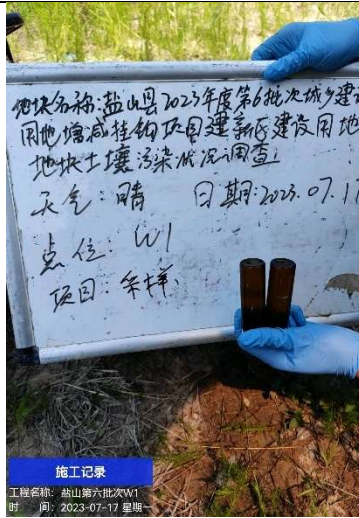 地块名称:盐山县2023年度第6批次城乡建设
用地增减挂钩项目建新区建设用地
地块土壤污染状况调查
天气:晴 日期:2023.07.17
点位:W1
项目:采样
施工记录
工程名称:盐山第六批次W1
时 间:2023-07-17 星期一